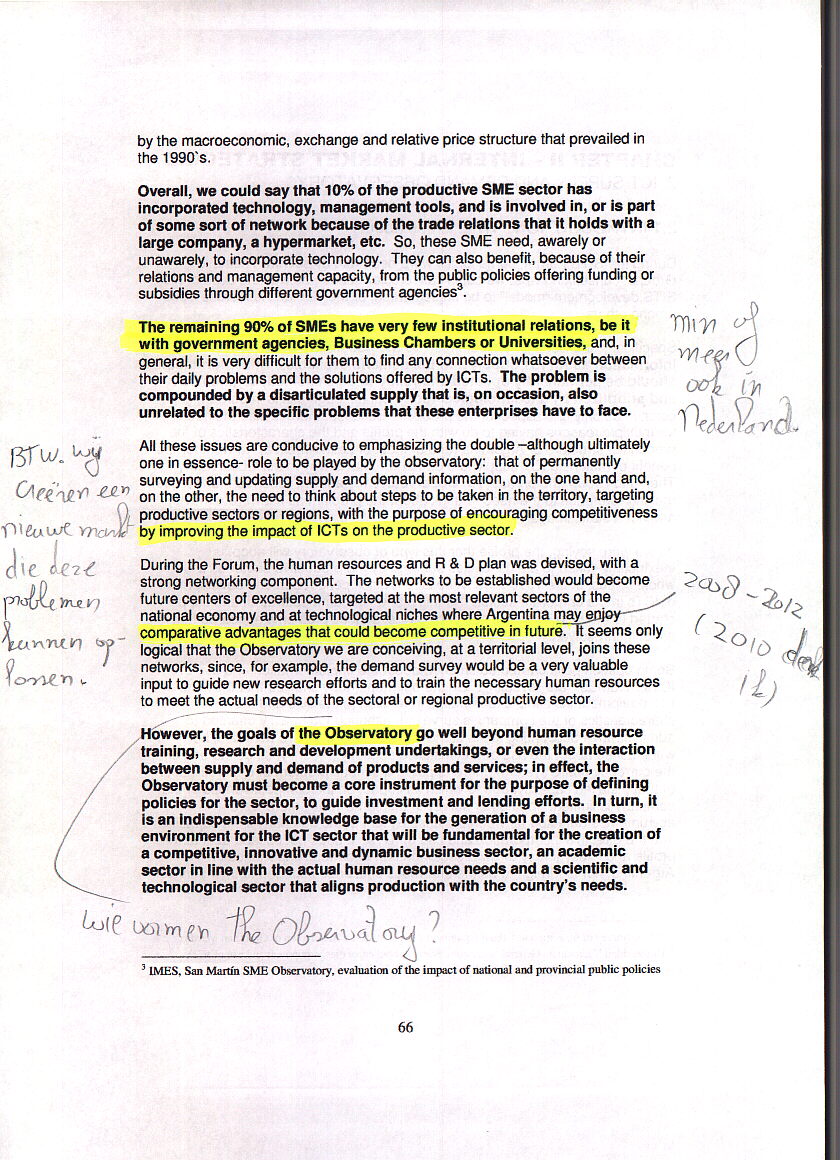 by the macroeconomic, exchange and relative price structure that prevailed in
the 1990`s.
Overall, we could say that 10% of the productive SME sector has
incorporated technology, management tools, and is involved in, or is part
of some sort of network because of the trade relations that it holds with a
large company, a hypermarket, etc. So, these SME need, awarely or
unawarely, to incorporate technology. They can also benefit, because of their
relations and management capacity, from the public policies offering funding or
subsidies through different government agencies³.
The remaining 90% of SMEs have very few institutional relations, be it
with government agencies, Business Chambers or Universities, and, in
general, it is very difficult for them to find any connection whatsoever between
their daily problems and the solutions offered by ICTs. The problem is
compounded by a disarticulated supply that is, on occasion, also
unrelated to the specific problems that these enterprises have to face.
min of
meer
ook in
Nederland.
All these issues are conducive to emphasizing the double –although ultimately
one in essence- role to be played by the observatory: that of permanently
surveying and updating supply and demand information, on the one hand and,
on the other, the need to think about steps to be taken in the territory, targeting
productive sectors or regions, with the purpose of encouraging competitiveness
by improving the impact of ICTs on the productive sector.
BTW. wij
Creëren een
nieuwe markt
die deze
problemen
kunnen op-
lossen.
During the Forum, the human resources and R & D plan was devised, with a
strong networking component. The networks to be established would become
future centers of excellence, targeted at the most relevant sectors of the
national economy and at technological niches where Argentina may enjoy
comparative advantages that could become competitive in future. It seems only
logical that the Observatory we are conceiving, at a territorial level, joins these
networks, since, for example, the demand survey would be a very valuable
input to guide new research efforts and to train the necessary human resources
to meet the actual needs of the sectoral or regional productive sector.
2008-2012
(2010 denk
ik)
However, the goals of the Observatory go well beyond human resource
training, research and development undertakings, or even the interaction
between supply and demand of products and services; in effect, the
Observatory must become a core instrument for the purpose of defining
policies for the sector, to guide investment and lending efforts. In turn, it
is an indispensable knowledge base for the generation of a business
environment for the ICT sector that will be fundamental for the creation of
a competitive, innovative and dynamic business sector, an academic
sector in line with the actual human resource needs and a scientific and
technological sector that aligns production with the country's needs.
wie vormen the Observatory?
³ IMES, San Martín SME Observatory, evaluation of the impact of national and provincial public policies
66